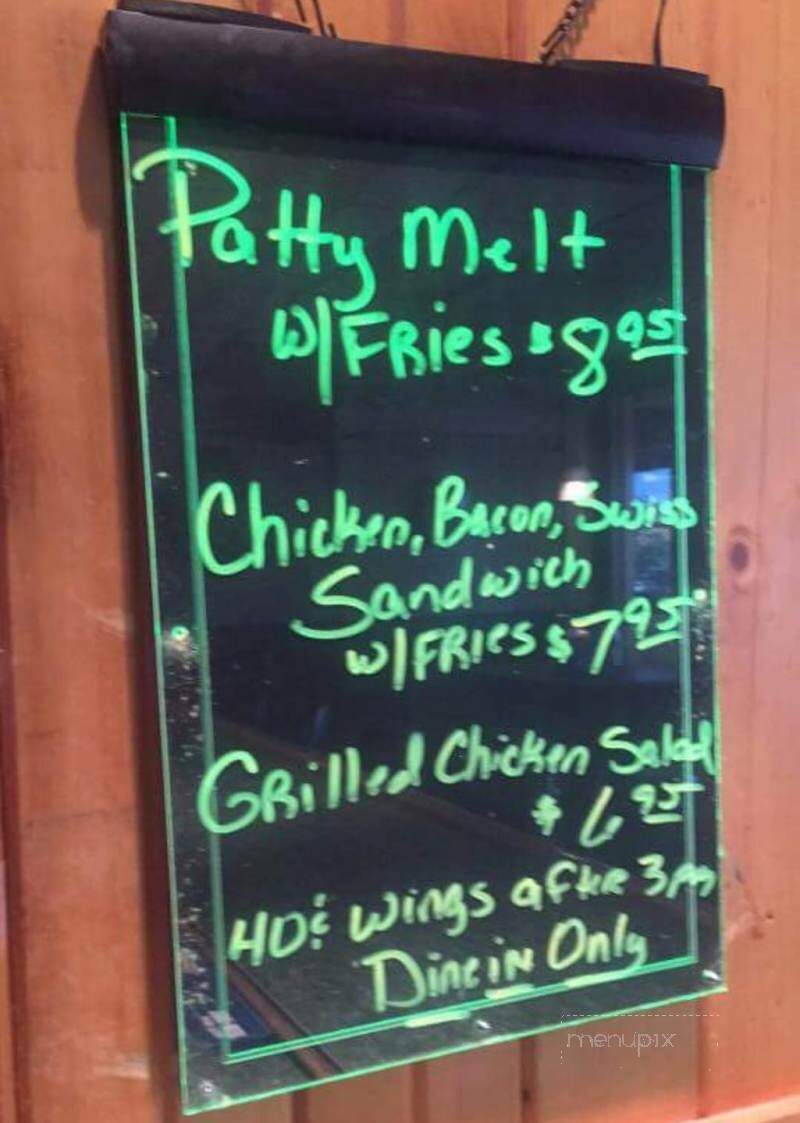 Patty Melt
w/FRies $8 95
Chicken, Bacon, Swiss
Sandwich
w/FRies $7 95
GRilled Chicken Salad
$6 95
40¢ wings after 3pm
Dine iN Only
menupix